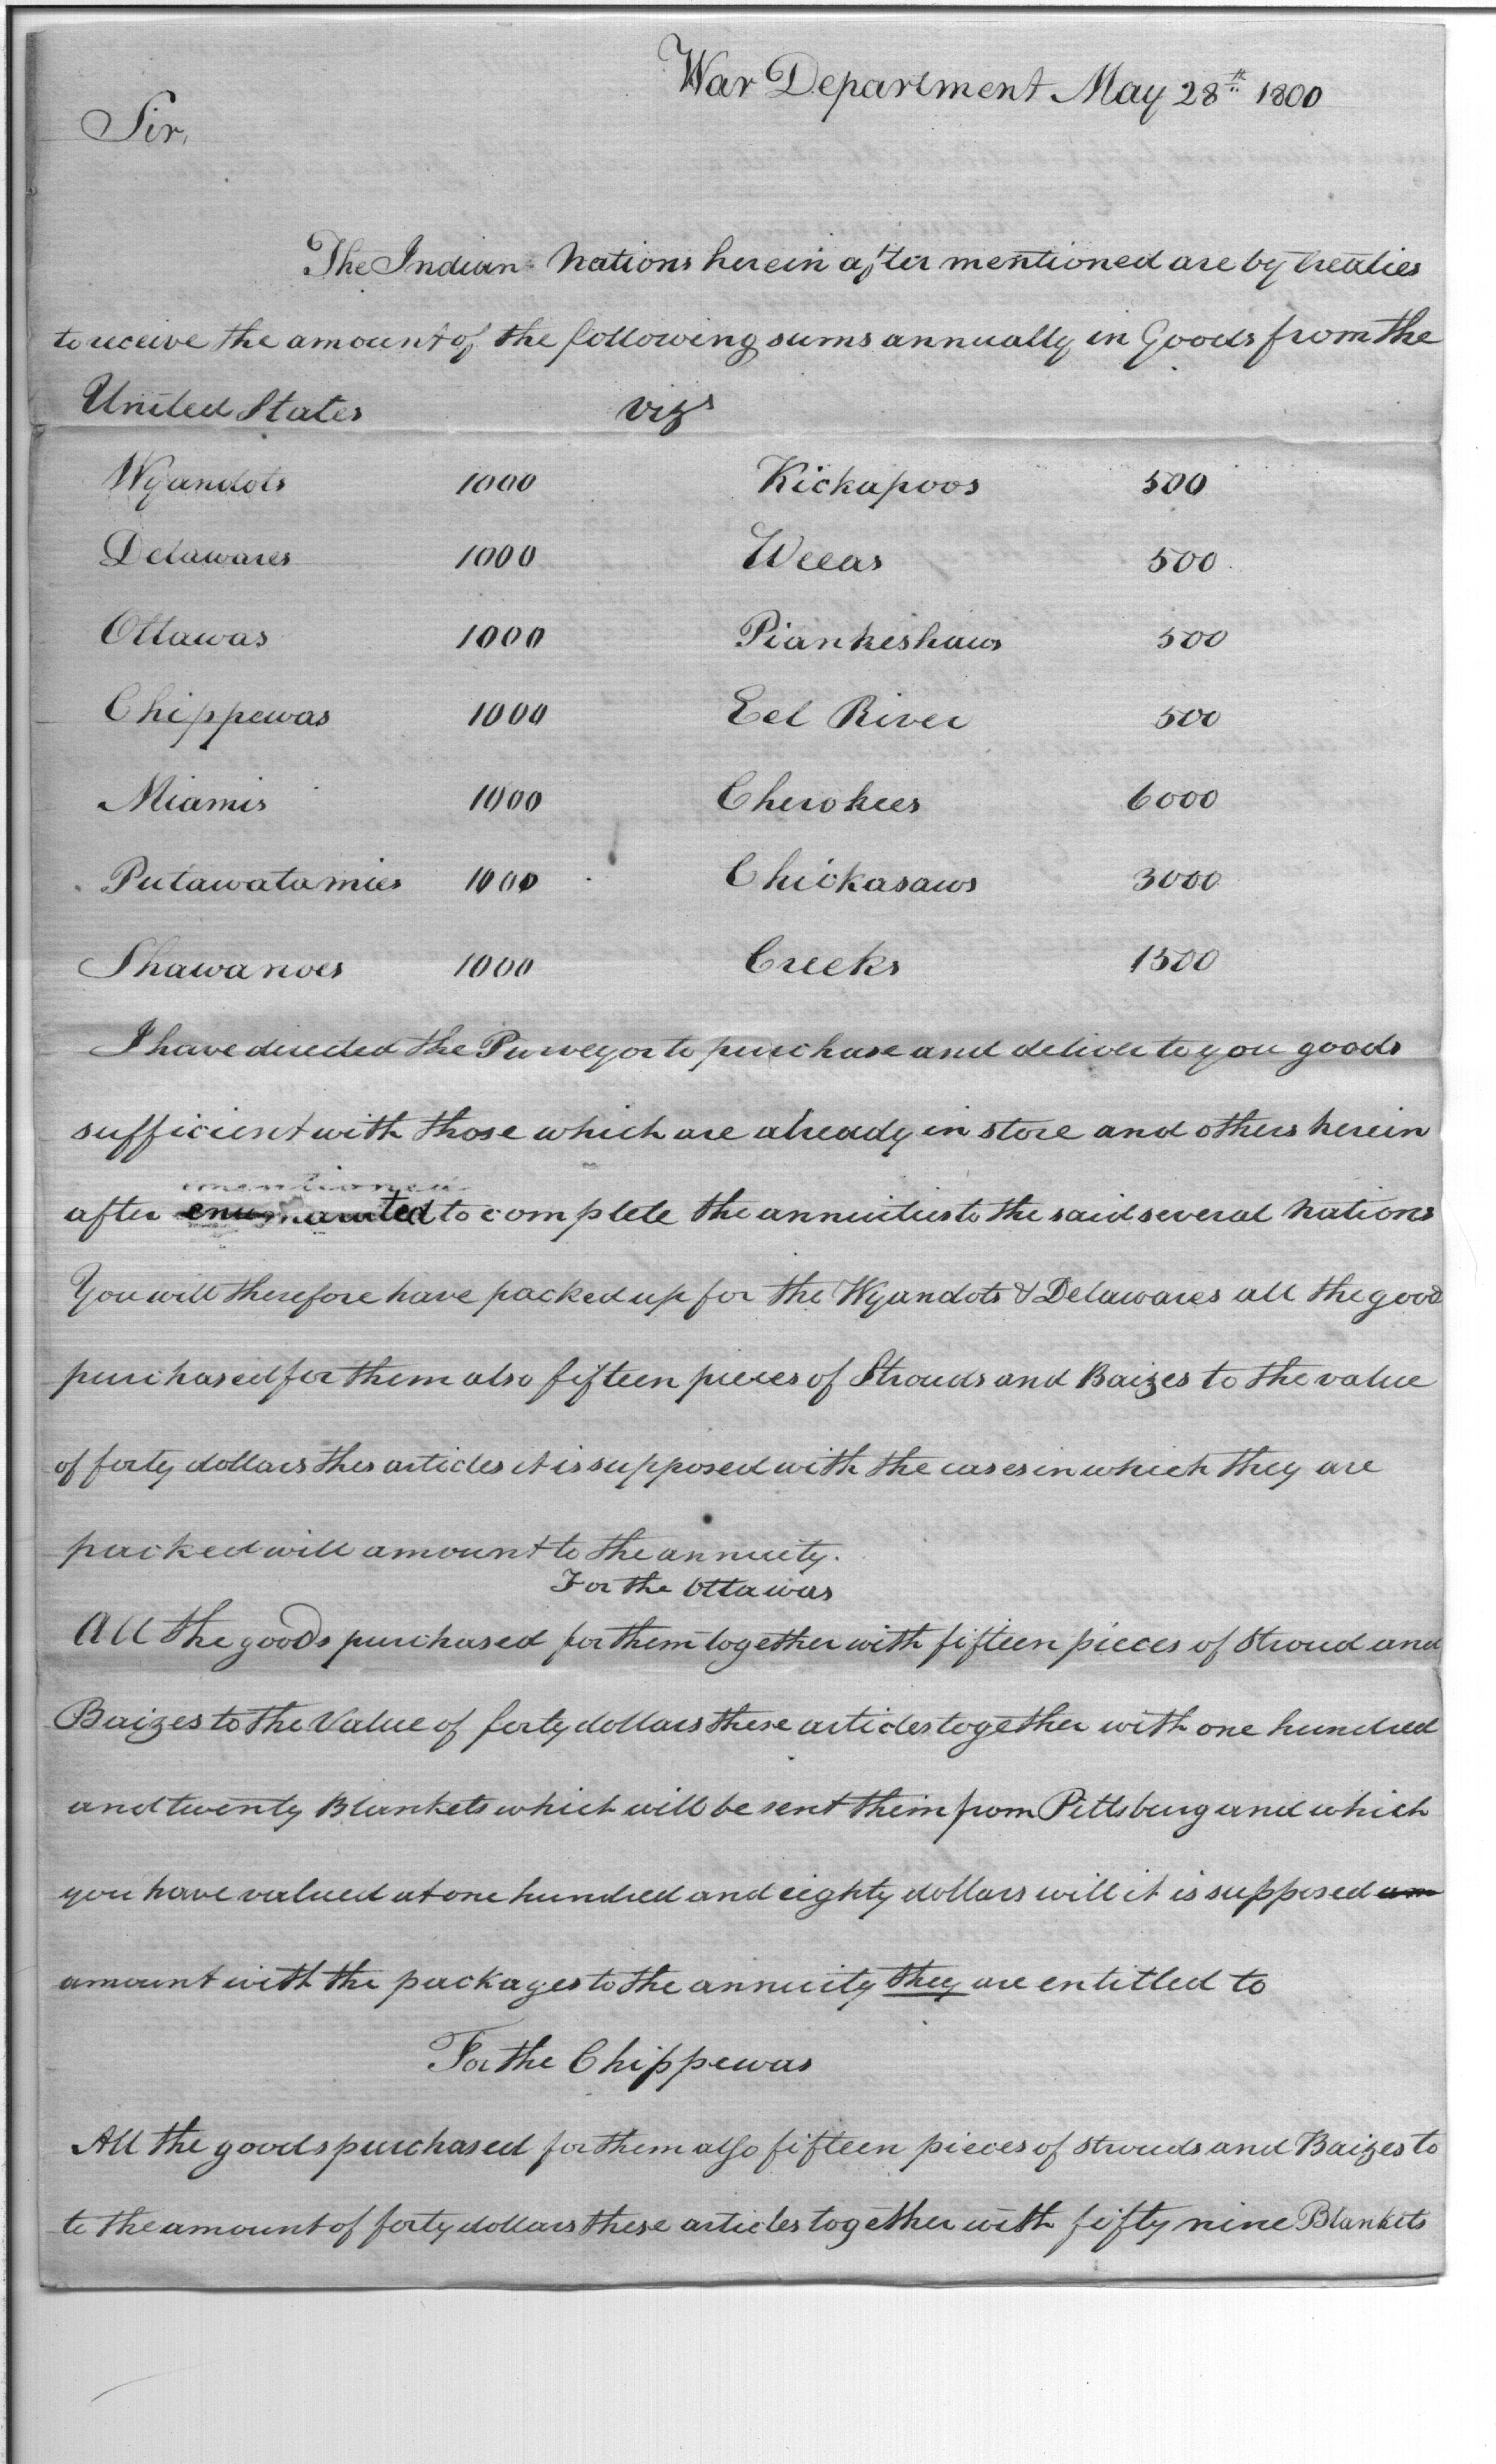 War Department May 28th 1800
Sir,
The Indian Nations herein after mentioned are by treaties
to receive the amount of the following sums annually in Goods from the
United States vizt
Wyandots 1000 Kickapoos 500
Delawares 1000 Weeas 500
Ottawas 1000 Piankeshaws 500
Chippewas 1000 Eel River 500
Miamis 1000 Cherokees 6000
Putawatamies 1000 Chickasaws 3000
Shawanoes 1000 Creeks 1500
I have directed the Purveyor to purchase and deliver to you goods
sufficient with those which are already in store and others herein
mentioned
after enumarated to complete the annuities to the said several Nations
You will therefore have packed up for the Wyandots & Delawares all the good
purchased for them also fifteen pieces of Strouds and Baizes to the value
of forty dollars thes articles it is supposed with the cases in which they are
packed will amount to the annuity.
For the Ottawas
All the goods purchased for them together with fifteen pieces of Stroud and
Baizes to the Value of forty dollars these articles together with one hundred
and twenty Blankets which will be sent them from Pittsburg and which
you have valued at one hundred and eighty dollars will it is supposed am
amount with the packages to the annuity they are entitled to
For the Chippewas
All the goods purchased for them also fifteen pieces of strouds and Baizes to
to the amount of forty dollars these articles together with fifty nine Blankets